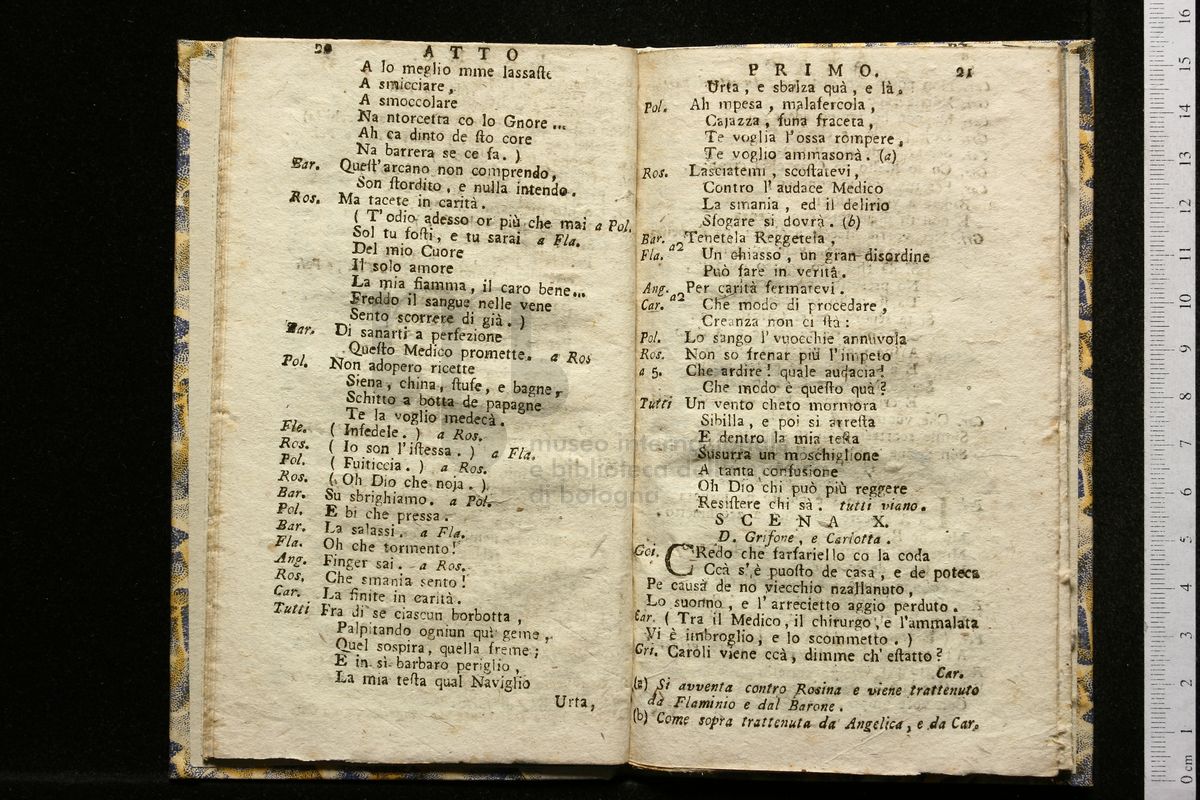 20 ATTO
A lo meglio mme lassaste
A smicciare,
A smoccolare
Na ntorcetta co lo Gnore...
Ah ca dinto de sto core
Na barrera se ce fa. )
Bar. Quest'arcano non comprendo,
Son stordito, e nulla intendo.
Ros. Ma tacete in carità.
( T'odio adesso or più che mai a Pol.
Sol tu fosti, e tu sarai a Fla.
Del mio Cuore
Il solo amore
La mia fiamma, il caro bene...
Freddo il sangue nelle vene
Sento scorrere di già. )
Bar. Di sanarti a perfezione
Questo Medico promette. a Ros
Pol. Non adopero ricette
Siena, china, stufe, e bagne,
Schitto a botta de papagne
Te la voglio medecà.
Fle. ( Infedele. ) a Ros.
Ros. ( Io son l'istessa. ) a Fla.
Pol. ( Fuiticcia. ) a Ros.
Ros. ( Oh Dio che noja. )
Bar. Su sbrighiamo. a Pol.
Pol. E bi che pressa.
Bar. La salassi. a Fla.
Fla. Oh che tormento!
Ang. Finger sai. a Ros.
Ros. Che smania sento!
Car. La finite in carità.
Tutti Fra di se ciascun borbotta,
Palpitando ogniun qui geme,
Quel sospira, quella freme;
E in sì barbaro periglio,
La mia testa qual Naviglio
Urta,
PRIMO. 21
Urta, e sbalza quà, e là.
Pol. Ah mpesa, malafercola,
Cajazza, funa fraceta,
Te voglia l'ossa rompere,
Te voglio ammasonà. (a)
Ros. Lasciatemi, scostatevi,
Contro l'audace Medico
La smania, ed il delirio
Sfogare si dovrà. (b)
Bar. Tenetela Reggetela,
Fla. a2 Un chiasso, un gran disordine
Può fare in verità.
Ang. Per carità fermatevi.
Car. a2 Che modo di procedare,
Creanza non ci stà:
Pol. Lo sango l'vuocchie annuvola
Ros. Non so frenar più l'impeto
a 5. Che ardire! quale audacia!
Che modo è questo quà?
Tutti Un vento cheto mormora
Sibilla, e poi si arresta
E dentro la mia testa
Susurra un moschiglione
A tanta confusione
Oh Dio chi può più reggere
Resistere chi sà. tutti viano.
SCENA X.
D. Grifone, e Carlotta.
Gri. CRedo che farfariello co la coda
Ccà s'è puosto de casa, e de poteca
Pe causa de no viecchio nzallanuto,
Lo suonno, e l'arrecietto aggio perduto.
Car. ( Tra il Medico, il chirurgo, e l'ammalata
Vi è imbroglio, e lo scommetto. )
Gri. Caroli viene ccà, dimme ch'estatto?
Car.
(a) Si avventa contro Rosina e viene trattenuto
da Flaminio e dal Barone.
(b) Come sopra trattenuta da Angelica, e da Car.
museo intern
e biblioteca d
di bologna
16
15
14
13
12
11
10
9
8
7
6
5
4
3
2
1
0 cm